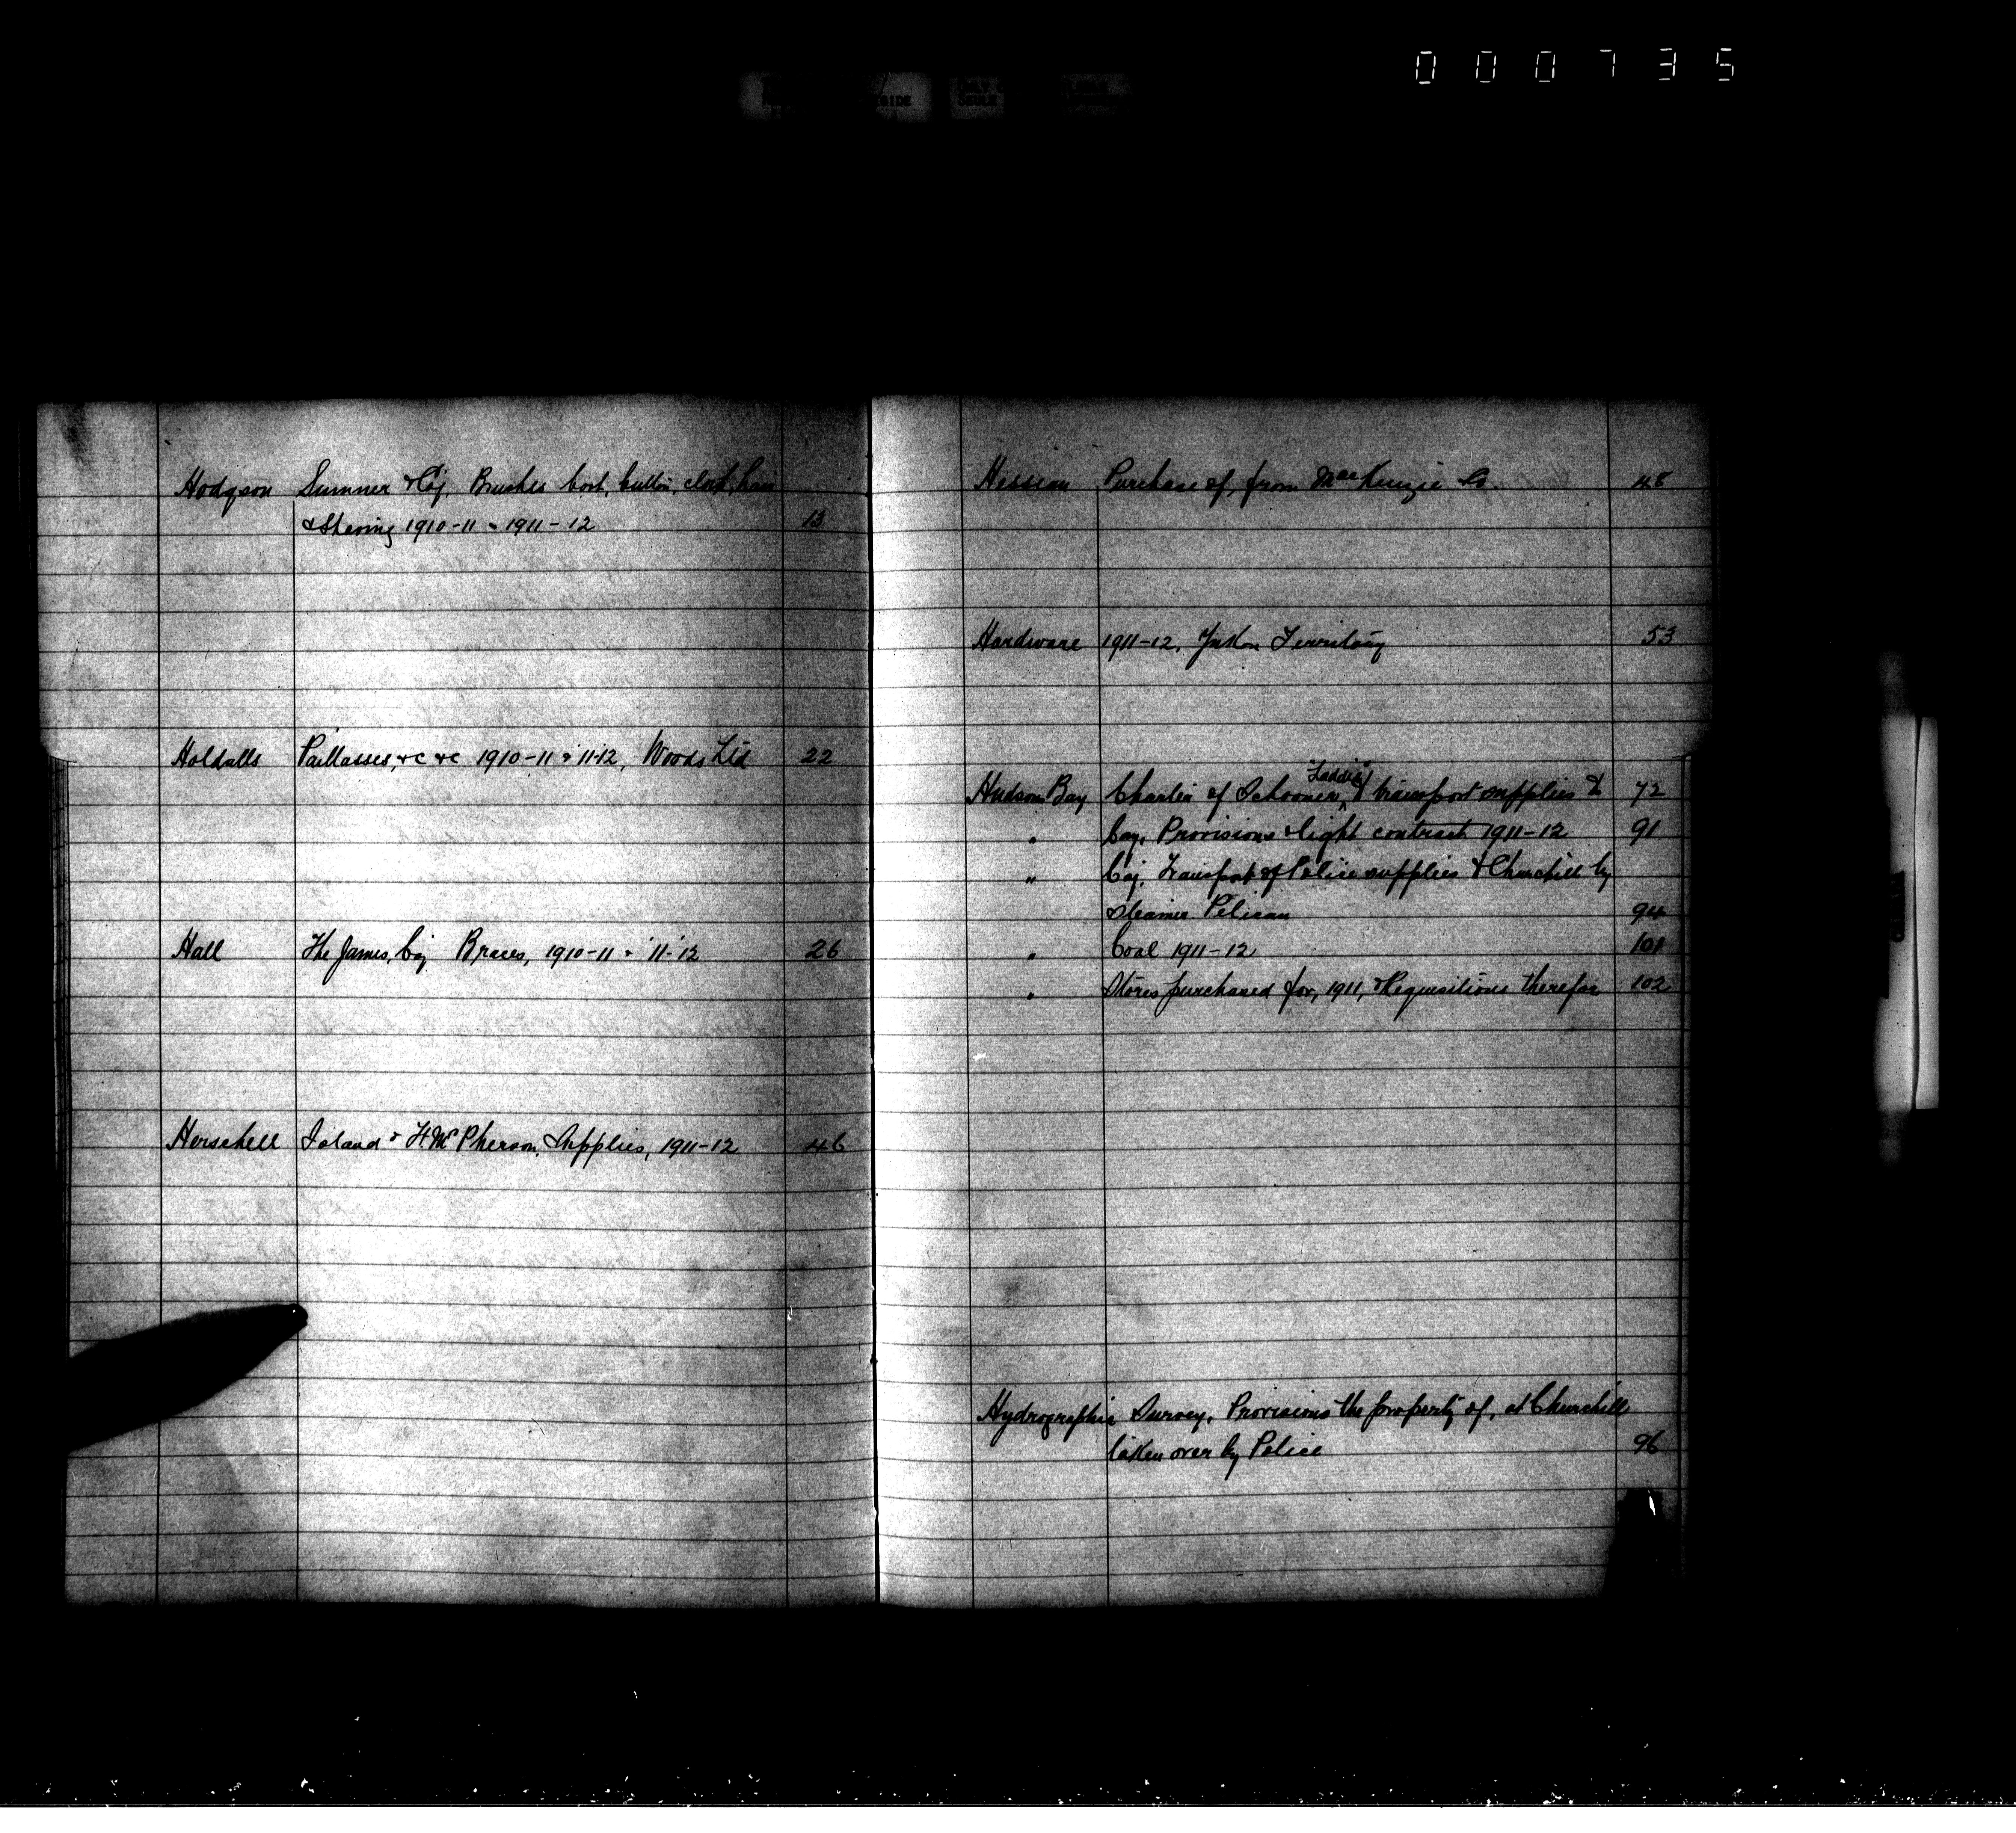 000735
Hodgson Sumner & Coy. Brushes boot, button, cloth, hair
& Shaving 1910-11 & 1911-12 13
Holdalls Paillasses, &c &c 1910-11 & 11-12, Woods Ltd 22
Hall The James, Coy Braces, 1910-11 & '11-'12 26
Herschell Island & Ft. McPherson, Supplies, 1911-12 46
Hessian Purchase of, from MacKenzie Co. 48
Hardware 1911-12, Yukon Territory 53
Hudson Bay Charter of Schooner, "Laddie" transport supplies to 72
" Coy. Provisions & light contract 1911-12 91
" Coy. Transport of Police supplies to Churchill by
steamer Pelican 94
" Coal 1911-12 101
" Stores purchased for, 1911, & Requisitions therefor 102
Hydrographic Survey, Provisions the property of, at Churchill
taken over by Police 96